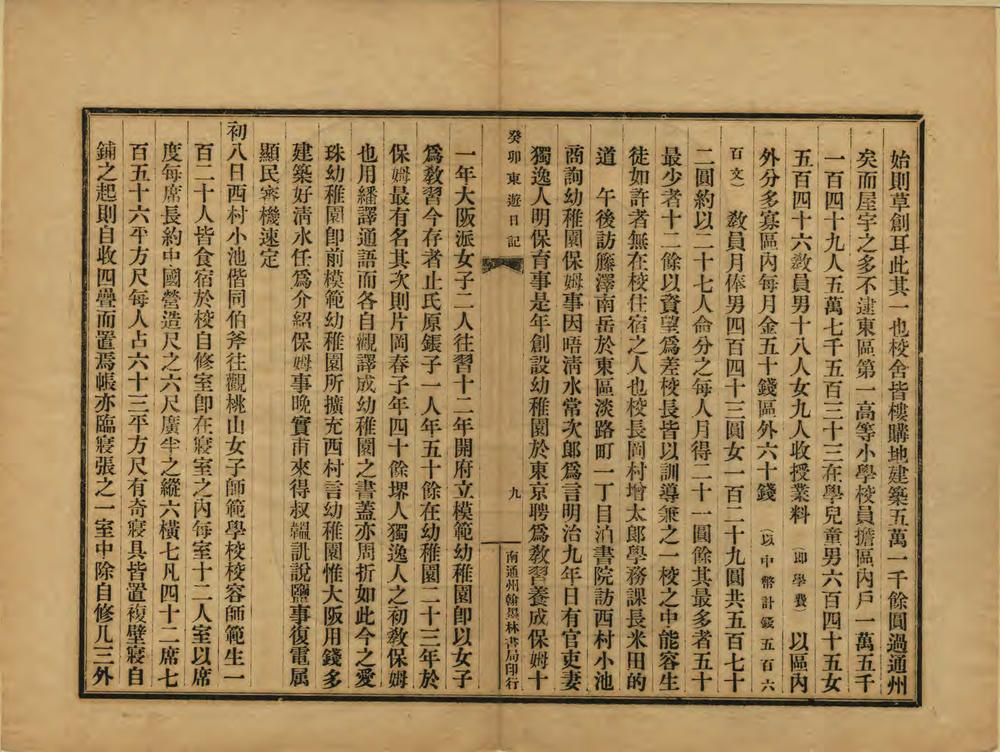 始則草創耳此其一也校舍皆樓購地建築五萬一千餘圓過通州
矣而屋宇之多不逮東區第一高等小學校員擔區內戶一萬五千
一百四十九人五萬七千五百三十三在學兒童男六百四十五女
五百四十六敎員男十八人女九人收授業料(卽學費)以區內
外分多寡區內每月金五十錢區外六十錢(以中幣計錢五百六
百文)敎員月俸男四百四十三圓女一百二十九圓共五百七十
二圓約以二十七人侖分之每人月得二十一圓餘其最多者五十
最少者十二餘以資望爲差校長皆以訓導兼之一校之中能容生
徒如許者無在校住宿之人也校長岡村增太郞學務課長米田的
道 午後訪藤澤南岳於東區淡路町一丁目泊書院訪西村小池
商詢幼稚園保姆事因晤淸水常次郞爲言明治九年日有官吏妻
獨逸人明保育事是年創設幼稚園於東京聘爲敎習養成保姆十
癸卯東遊日記
九
南通州翰墨林書局印行
一年大阪派女子二人往習十二年開府立模範幼稚園卽以女子
爲敎習今存者止氏原鋹子一人年五十餘在幼稚園二十三年於
保姆最有名其次則片岡春子年四十餘堺人獨逸人之初敎保姆
也用繙譯通語而各自觀譯成幼稚園之書蓋亦周折如此今之愛
珠幼稚園卽前模範幼稚園所擴充西村言幼稚園惟大阪用錢多
建築好淸水任爲介紹保姆事晚實甫來得叔韞訊說鹽事復電屬
顯民審機速定
初八日西村小池偕同伯斧往觀桃山女子師範學校校容師範生一
百二十人皆食宿於校自修室卽在寢室之內每室十二人室以席
度每席長約中國營造尺之六尺廣半之縱六橫七凡四十二席七
百五十六平方尺每人占六十三平方尺有奇寢具皆置複壁寢自
鋪之起則自收四疊而置焉帳亦臨寢張之一室中除自修几三外